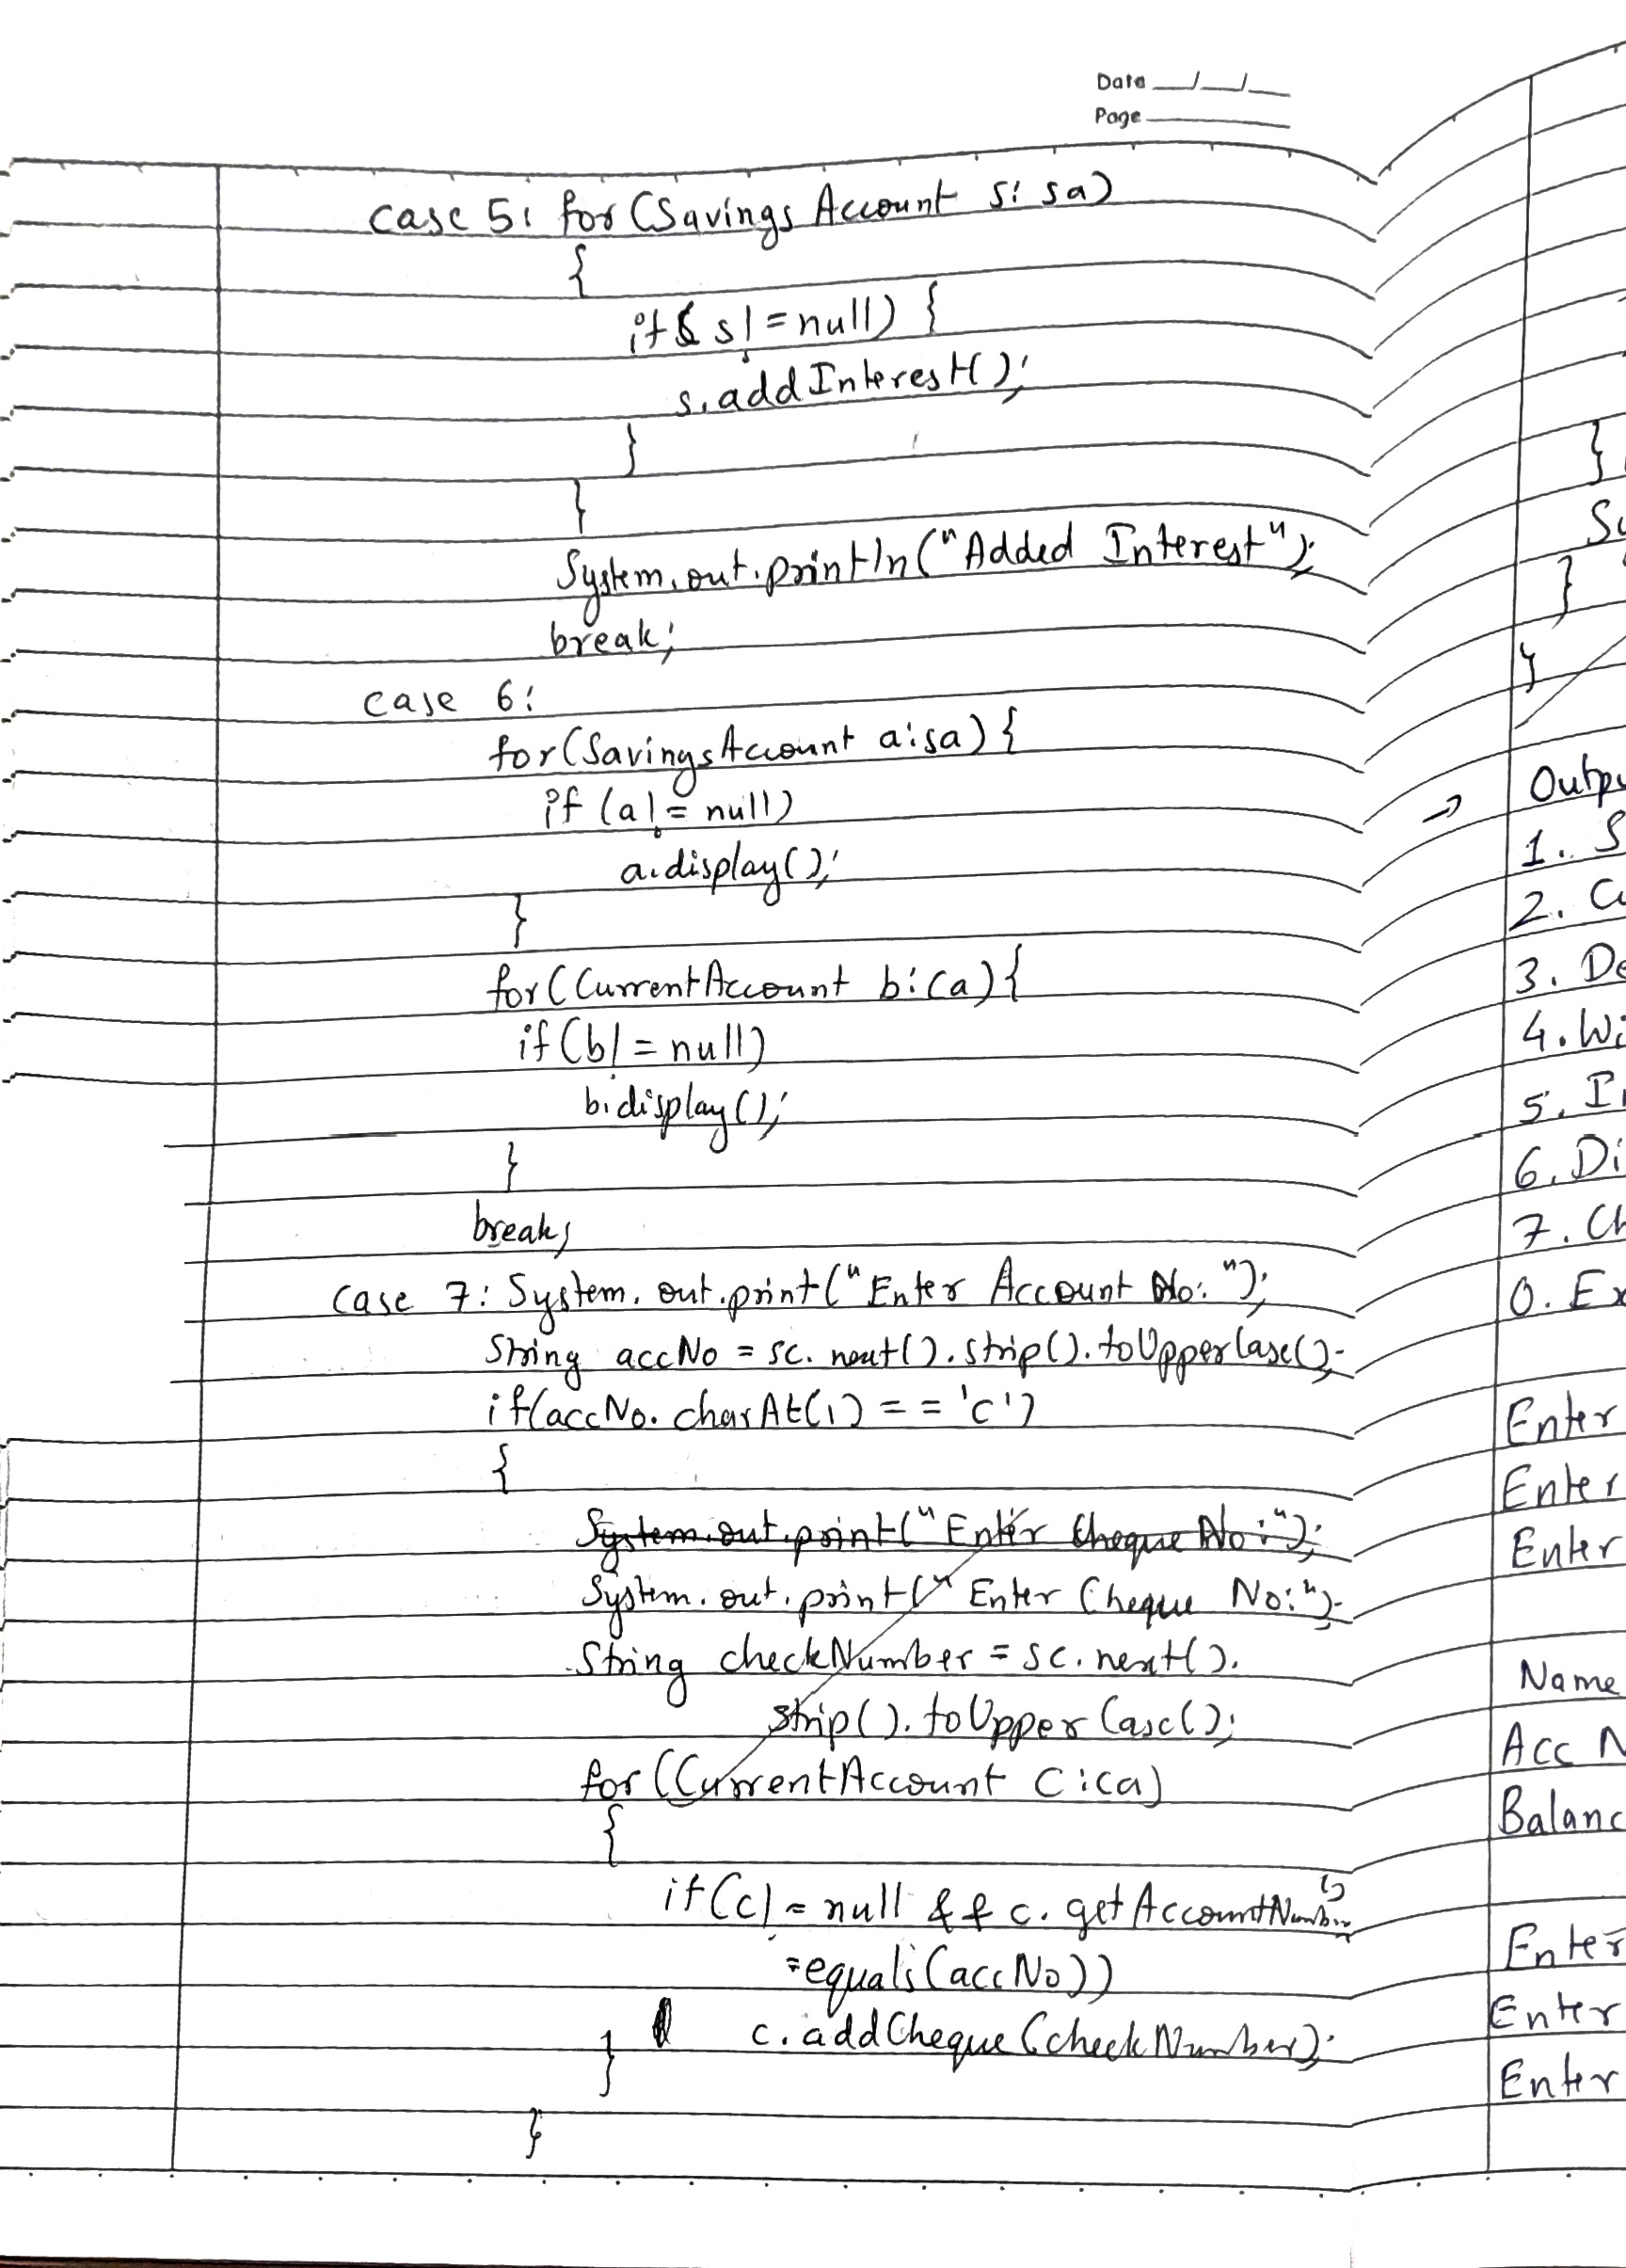 Date __/__/__
Page
case 5: for (SavingsAccount s: sa)
{
if( s != null) {
s.addInterest();
}
}
System.out.println("Added Interest");
break;
case 6:
for(SavingsAccount a:sa){
if (a != null)
a.display();
}
for(CurrentAccount b:ca){
if(b != null)
b.display();
}
break;
case 7: System.out.print("Enter Account No: ");
String accNo = sc.next().strip().toUpperCase();
if(accNo.charAt(1) == 'c')
{
System.out.print("Enter Cheque No:");
System.out.print("Enter Cheque No:");
String checkNumber = sc.next().
strip().toUpperCase();
for(CurrentAccount c:ca)
{
if(c != null && c.getAccountNumber()
=equals(accNo))
c.addCheque(checkNumber);
}
}
}
}
}
Outpu
1. S
2. Cu
3. De
4. Wi
5. In
6. Di
7. Ch
0. Ex
Enter
Enter
Enter
Name
Acc N
Balanc
Enter
Enter
Enter